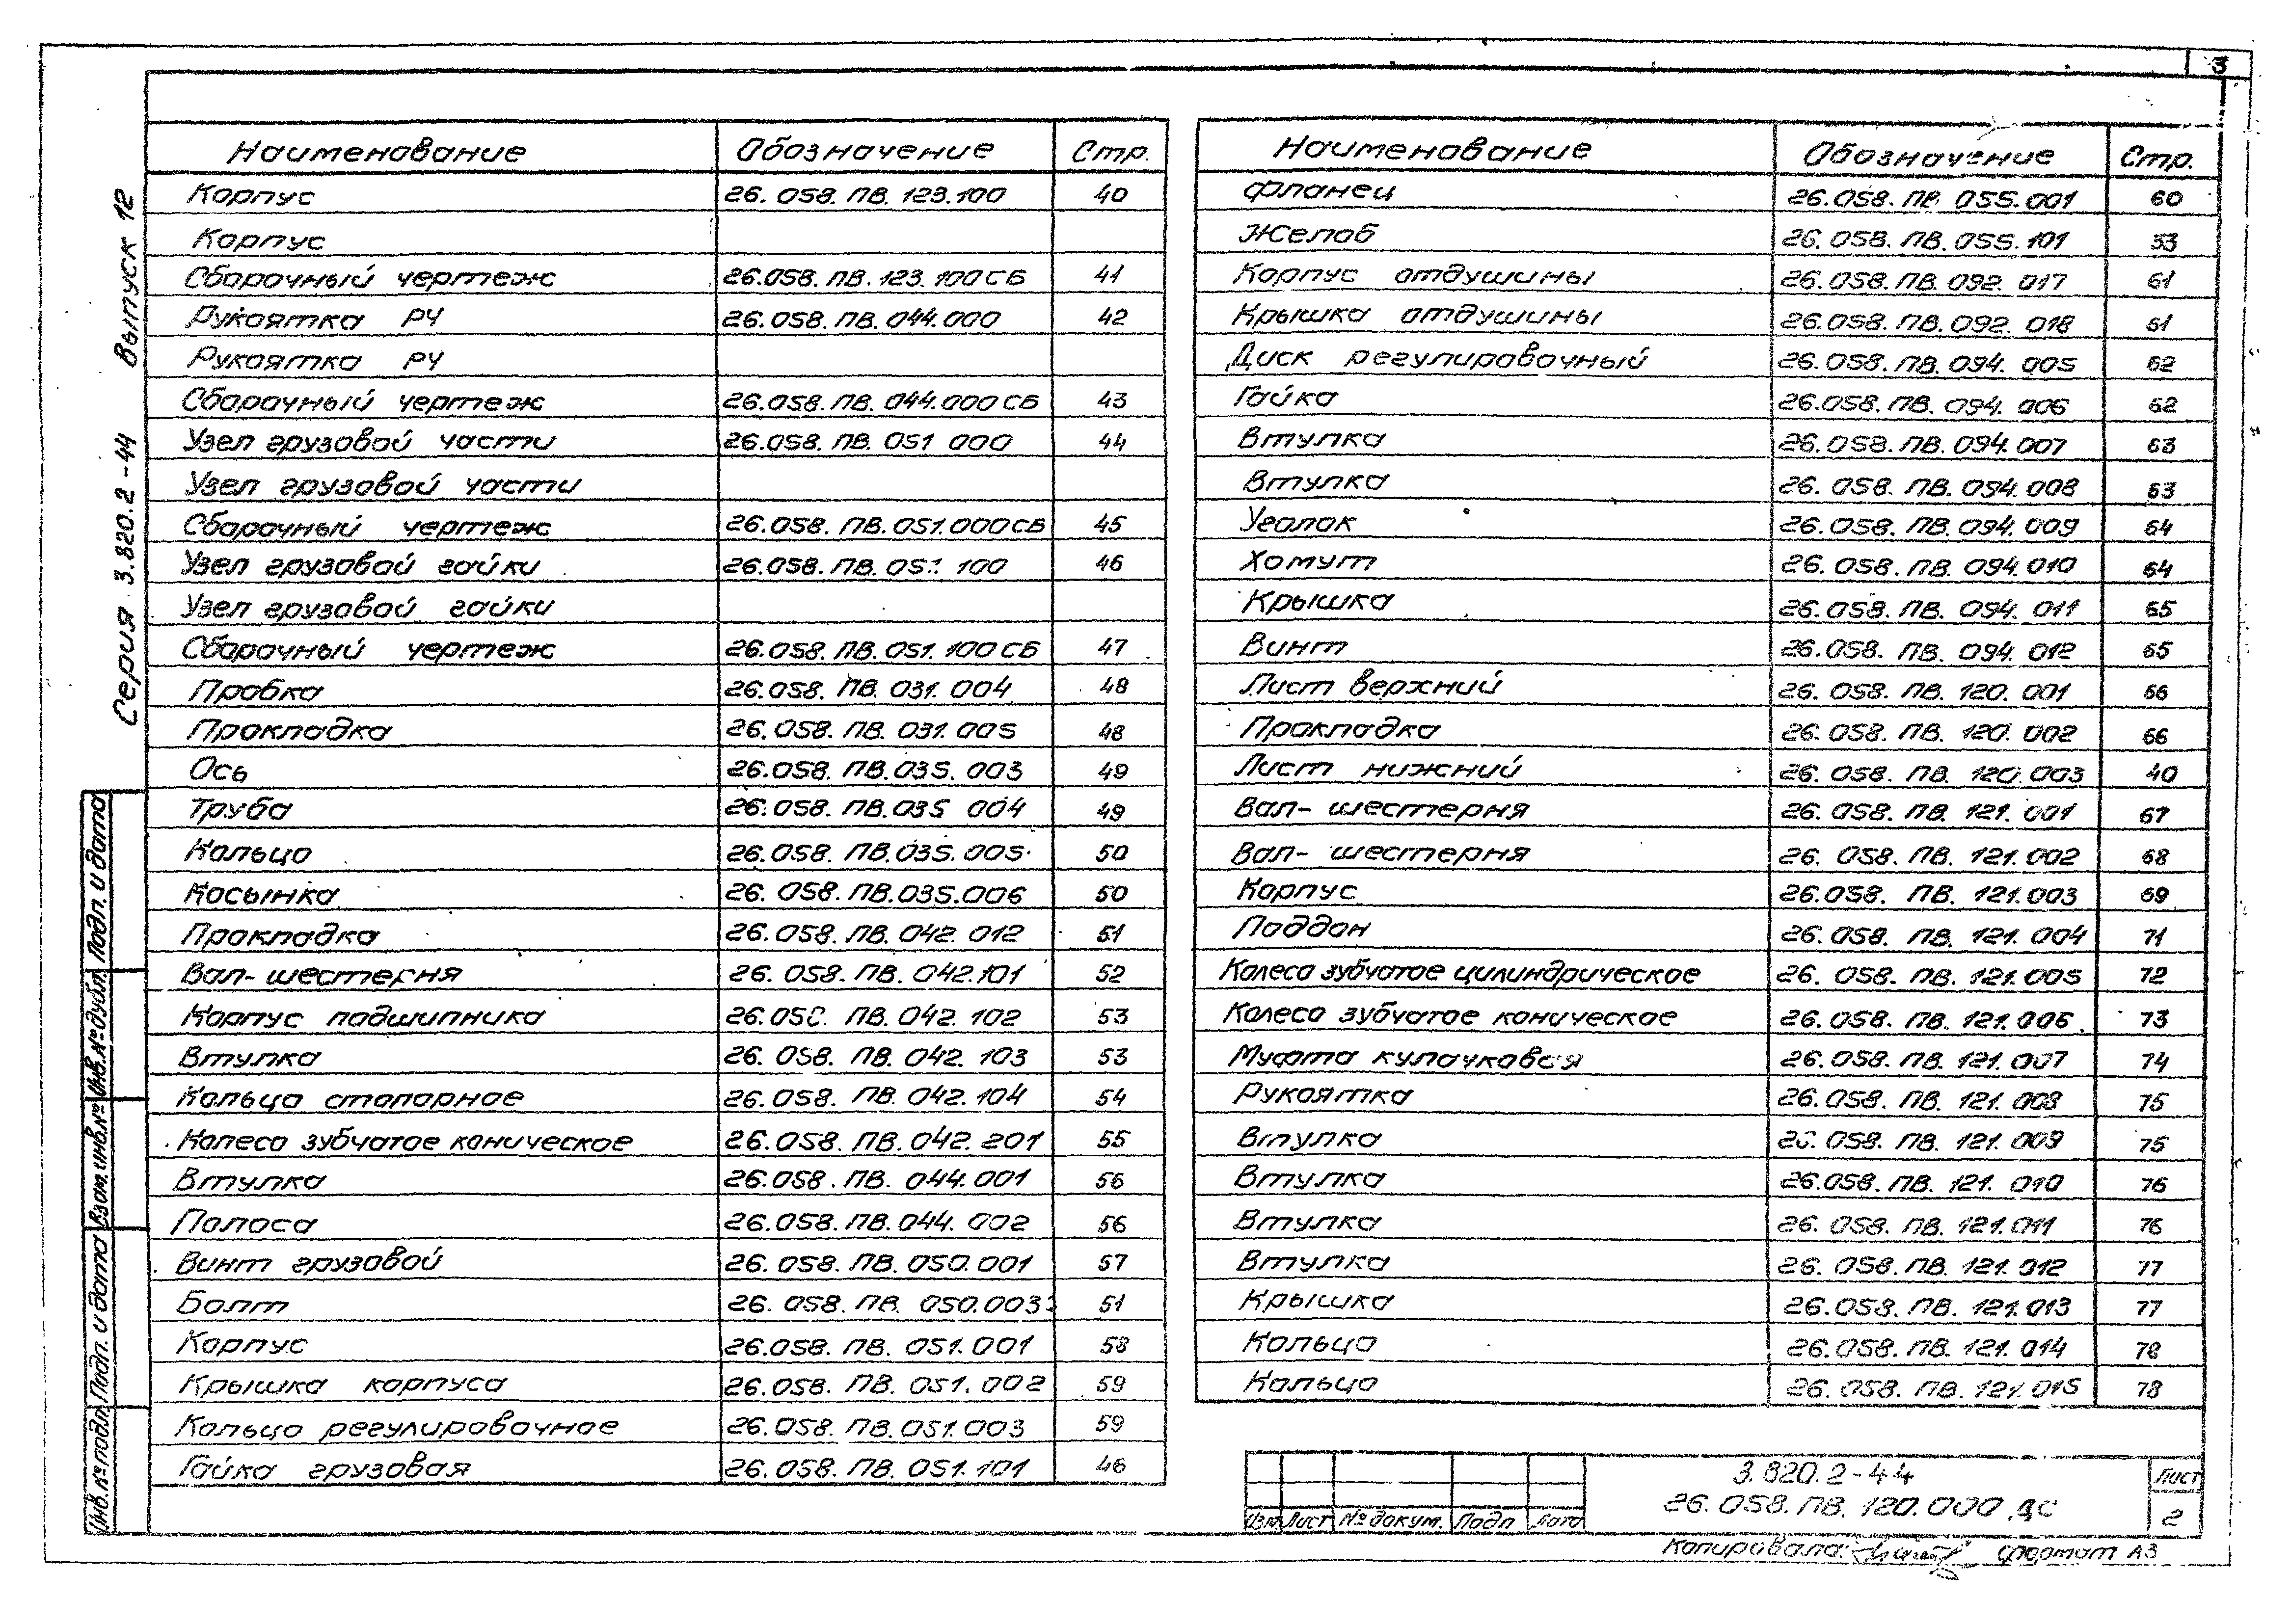 3
Серия 3.820.2-44 Выпуск 12
Наименование Обозначение Стр.
Корпус 26.058.ПВ.123.100 40
Корпус
Сборочный чертеж 26.058.ПВ.123.100СБ 41
Рукоятка РЧ 26.058.ПВ.044.000 42
Рукоятка РЧ
Сборочный чертеж 26.058.ПВ.044.000СБ 43
Узел грузовой части 26.058.ПВ.051 000 44
Узел грузовой части
Сборочный чертеж 26.058.ПВ.051.000СБ 45
Узел грузовой гайки 26.058.ПВ.051 100 46
Узел грузовой гайки
Сборочный чертеж 26.058.ПВ.051.100СБ 47
Пробка 26.058.ПВ.031.004 48
Прокладка 26.058.ПВ.031.005 48
Ось 26.058.ПВ.035.003 49
Труба 26.058.ПВ.035 004 49
Кольцо 26.058.ПВ.035.005 50
Косынка 26.058.ПВ.035.006 50
Прокладка 26.058.ПВ.042.012 51
Вал-шестерня 26.058.ПВ.042.101 52
Корпус подшипника 26.058.ПВ.042.102 53
Втулка 26.058.ПВ.042.103 53
Кольцо стопорное 26.058.ПВ.042.104 54
Колесо зубчатое коническое 26.058.ПВ.042.201 55
Втулка 26.058.ПВ.044.001 56
Полоса 26.058.ПВ.044.002 56
Винт грузовой 26.058.ПВ.050.001 57
Болт 26.058.ПВ.050.003 51
Корпус 26.058.ПВ.051.001 58
Крышка корпуса 26.058.ПВ.051.002 59
Кольцо регулировочное 26.058.ПВ.051.003 59
Гайка грузовая 26.058.ПВ.051.101 46
Наименование Обозначение Стр.
Фланец 26.058.ПВ.055.001 60
Желоб 26.058.ПВ.055.101 53
Корпус отдушины 26.058.ПВ.092.017 61
Крышка отдушины 26.058.ПВ.092.018 61
Диск регулировочный 26.058.ПВ.094.005 62
Гайка 26.058.ПВ.094.006 62
Втулка 26.058.ПВ.094.007 63
Втулка 26.058.ПВ.094.008 63
Уголок 26.058.ПВ.094.009 64
Хомут 26.058.ПВ.094.010 64
Крышка 26.058.ПВ.094.011 65
Винт 26.058.ПВ.094.012 65
Лист верхний 26.058.ПВ.120.001 66
Прокладка 26.058.ПВ.120.002 66
Лист нижний 26.058.ПВ.120.003 40
Вал-шестерня 26.058.ПВ.121.001 67
Вал-шестерня 26.058.ПВ.121.002 68
Корпус 26.058.ПВ.121.003 69
Поддон 26.058.ПВ.121.004 71
Колесо зубчатое цилиндрическое 26.058.ПВ.121.005 72
Колесо зубчатое коническое 26.058.ПВ.121.006 73
Муфта кулачковая 26.058.ПВ.121.007 74
Рукоятка 26.058.ПВ.121.008 75
Втулка 26.058.ПВ.121.009 75
Втулка 26.058.ПВ.121.010 76
Втулка 26.058.ПВ.121.011 76
Втулка 26.058.ПВ.121.012 77
Крышка 26.058.ПВ.121.013 77
Кольцо 26.058.ПВ.121.014 78
Кольцо 26.058.ПВ.121.015 78
Инв.№подл. Подп. и дата Взам.инв.№ Инв.№дубл. Подп. и дата
3.820.2-44
26.058.ПВ.120.000 ДС
Лист
2
Изм Лист №докум. Подп Дата
Копировала: Формат А3